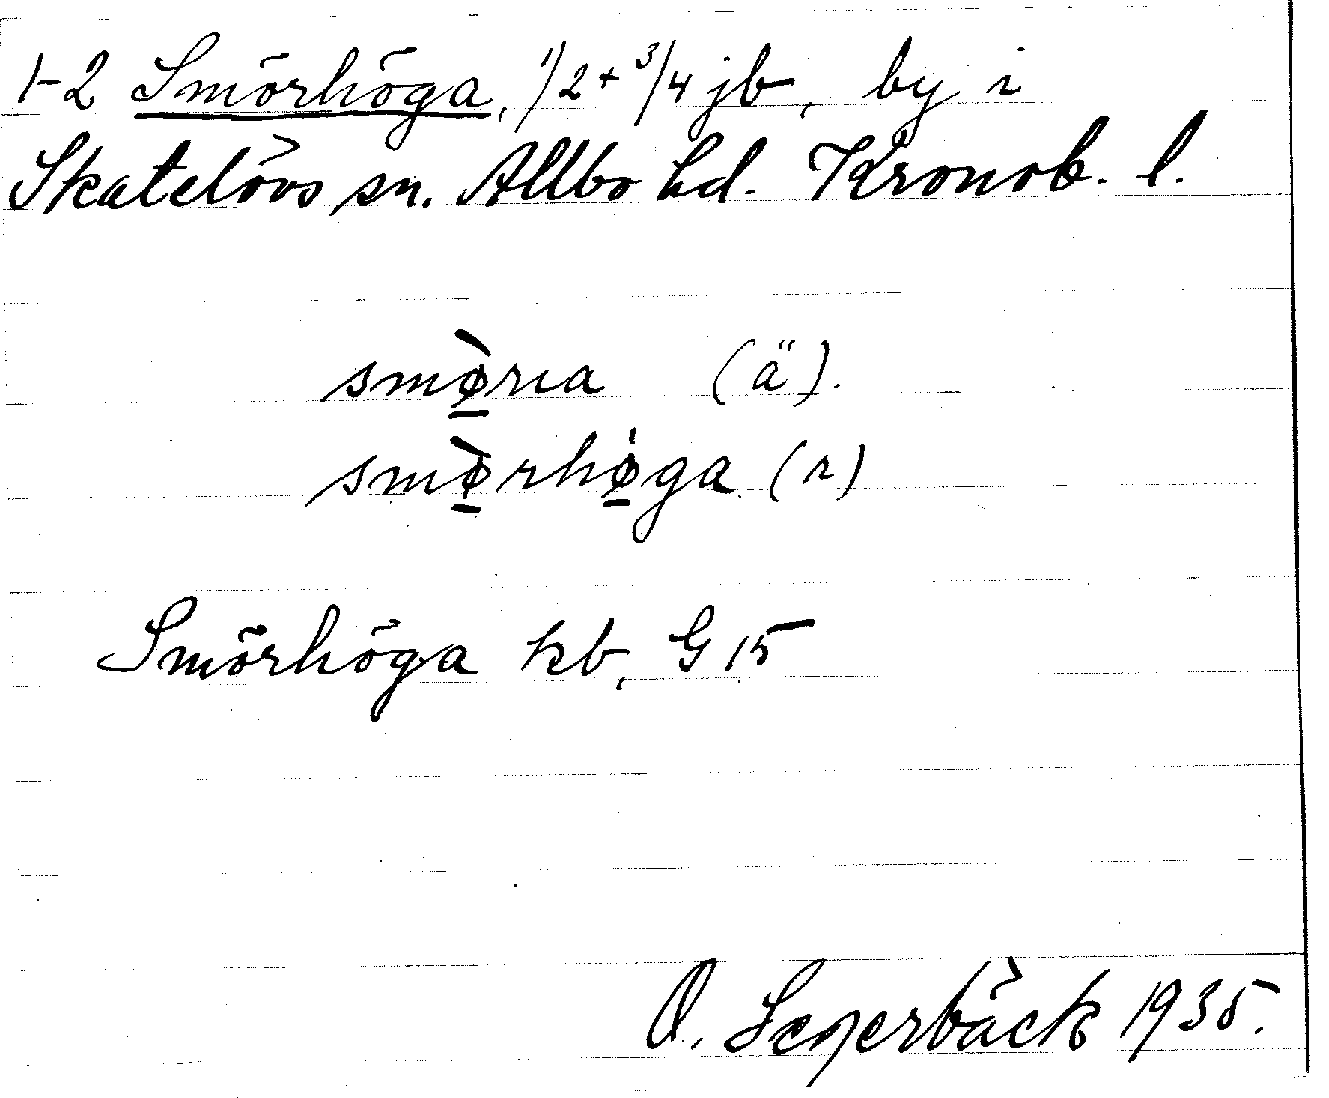 1-2 Smörhöga, 1/2 + 3/4 jb, by i
Skatelövs sn. Allbo hd. Kronob. l.
smø̱̀rıa (ä).
smø̱̀rhø̱̇ga (r)
Smörhöga kb, G 15
O. Segerbäck 1935.